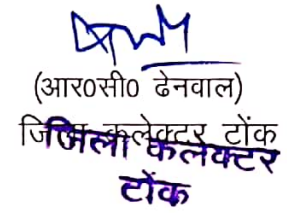 (आर0सी0 ढेनवाल)
जिला कलेक्टर टोंक
जिला कलेक्टर
टोंक